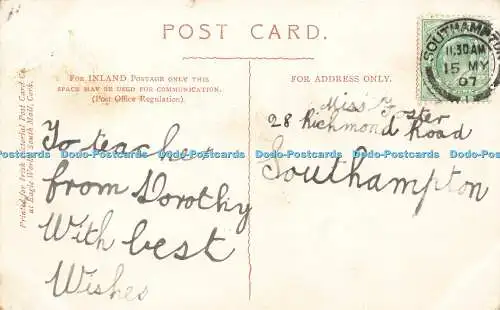 POST CARD.
FOR INLAND POSTAGE ONLY THIS
SPACE MAY BE USED FOR COMMUNICATION.
(Post Office Regulation).
FOR ADDRESS ONLY.
SOUTHAMPTON
11.30AM
15 MY
07
Printed for Irish Pictorial Post Card Co.
at Eagle Works, South Mall, Cork.
To teacher
from Dorothy
With best
Wishes
Miss Foster
28 Richmond Road
Southampton
Dodo-Postcards Dodo-Postcards Dodo-Postcards Dodo-Postcards Dodo-Postcards Dodo-Postcards